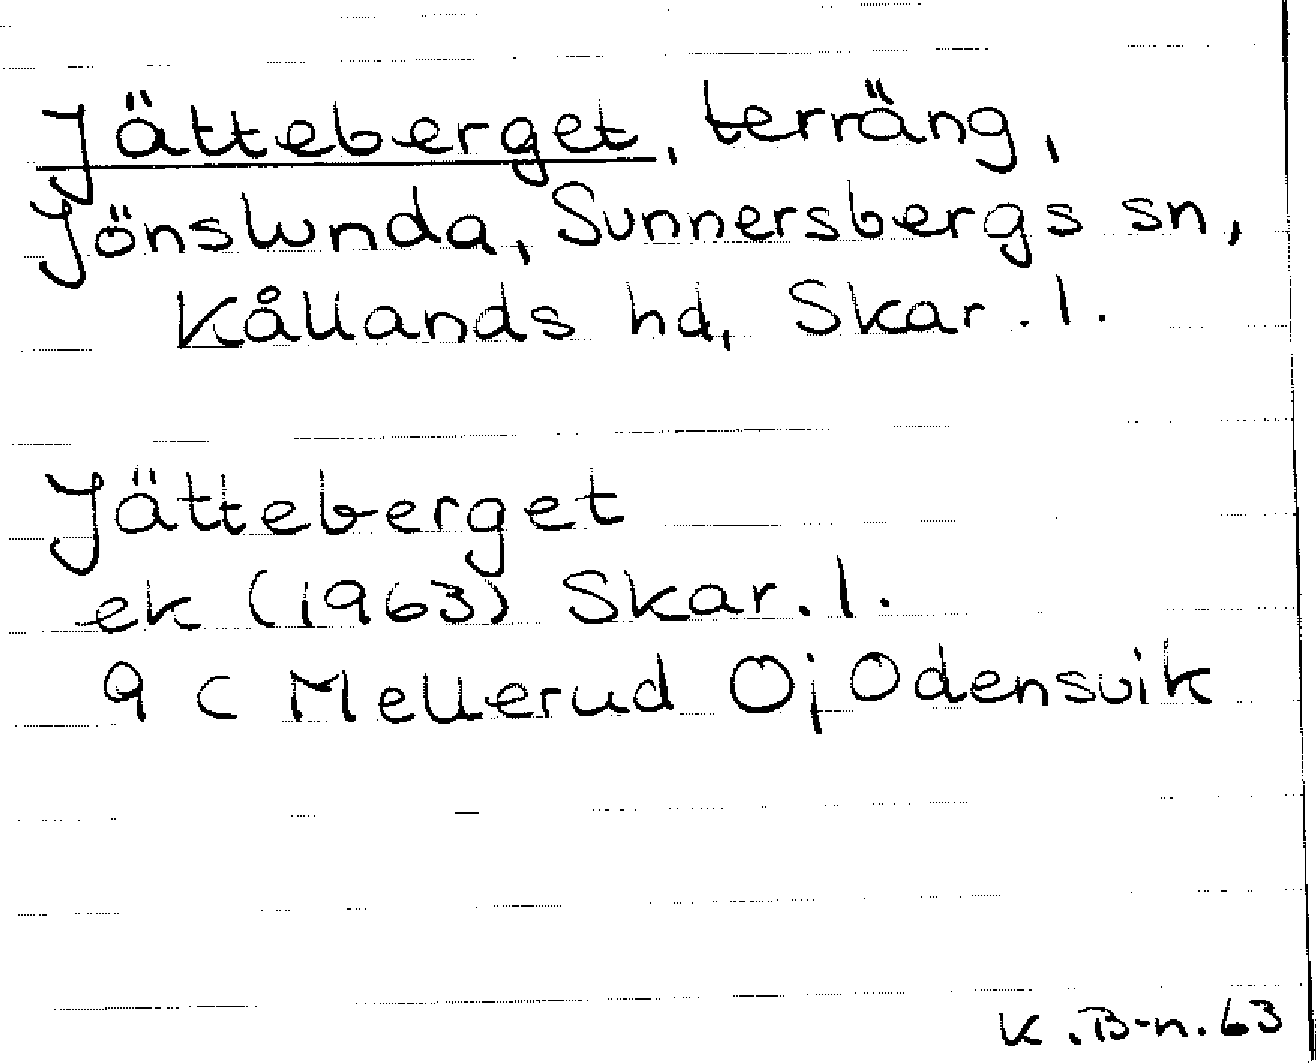 Jätteberget, terräng,
Jönslunda, Sunnersbergs sn,
Kållands hd, Skar. l.
Jätteberget
ek (1963) Skar. l.
9 C Mellerud 0j Odensvik
K. B-n. 63